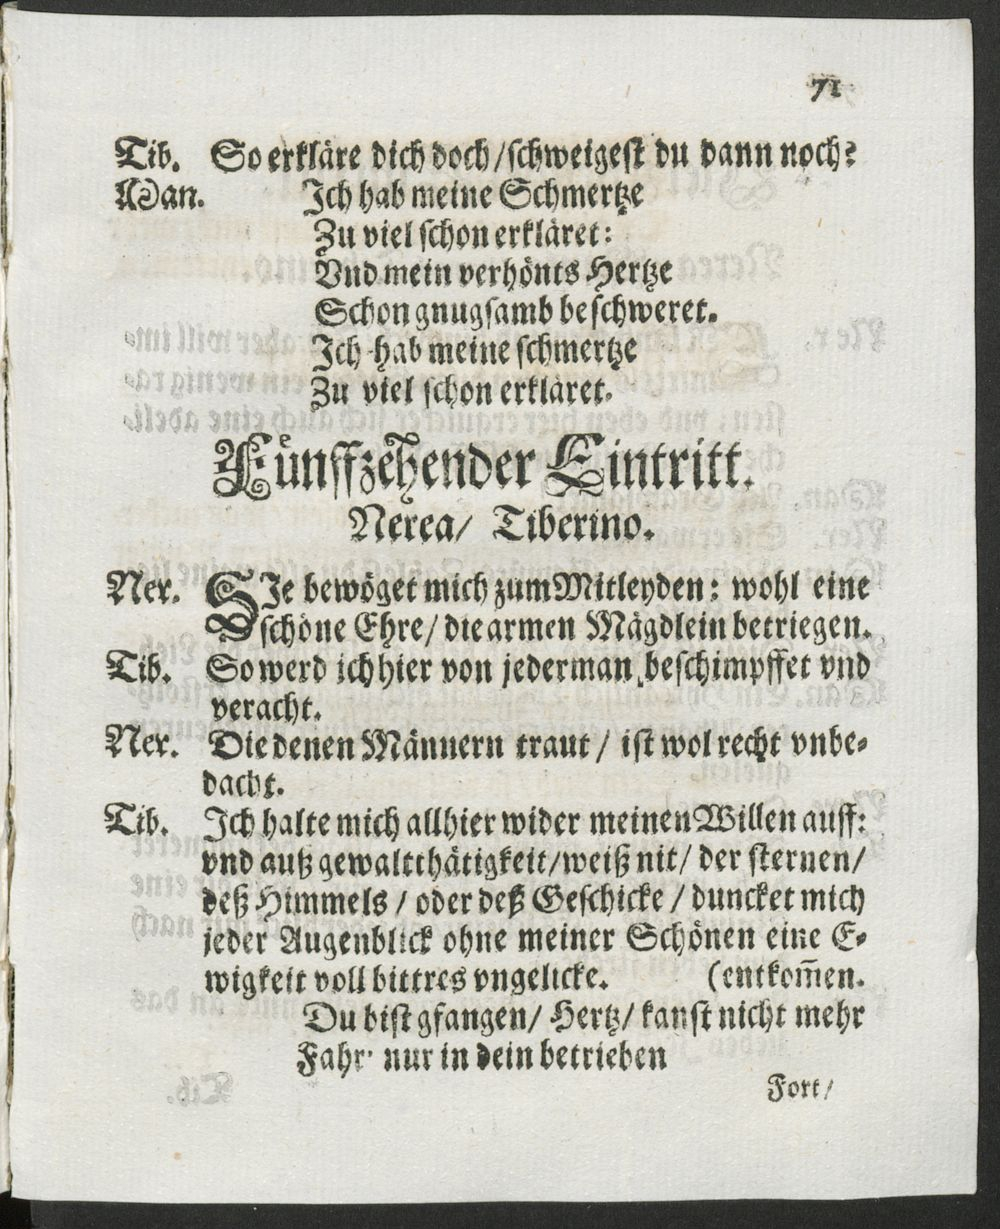 71
Tib. So erkläre dich doch/schweigest du dann noch?
Man. Ich hab meine Schmertze
Zu viel schon erkläret:
Vnd mein verhönts Hertze
Schon gnugsamb beschweret.
Ich hab meine schmertze
Zu viel schon erkläret.
Fünffzehender Eintritt.
Nerea/ Tiberino.
Ner. SJe bewöget mich zum Mitleyden: wohl eine
schöne Ehre/ die armen Mägdlein betriegen.
Tib. So werd ich hier von jederman beschimpffet vnd
veracht.
Ner. Die denen Männern traut / ist wol recht vnbe-
dacht.
Tib. Ich halte mich allhier wider meinen Willen auff:
vnd auß gewaltthätigkeit/weiß nit/ der sternen/
deß Himmels / oder deß Geschicke / duncket mich
jeder Augenblick ohne meiner Schönen eine E-
wigkeit voll bittres vngelicke. (entkom̄en.
Du bist gfangen/ Hertz/ kanst nicht mehr
Fahr nur in dein betrieben
Fort/